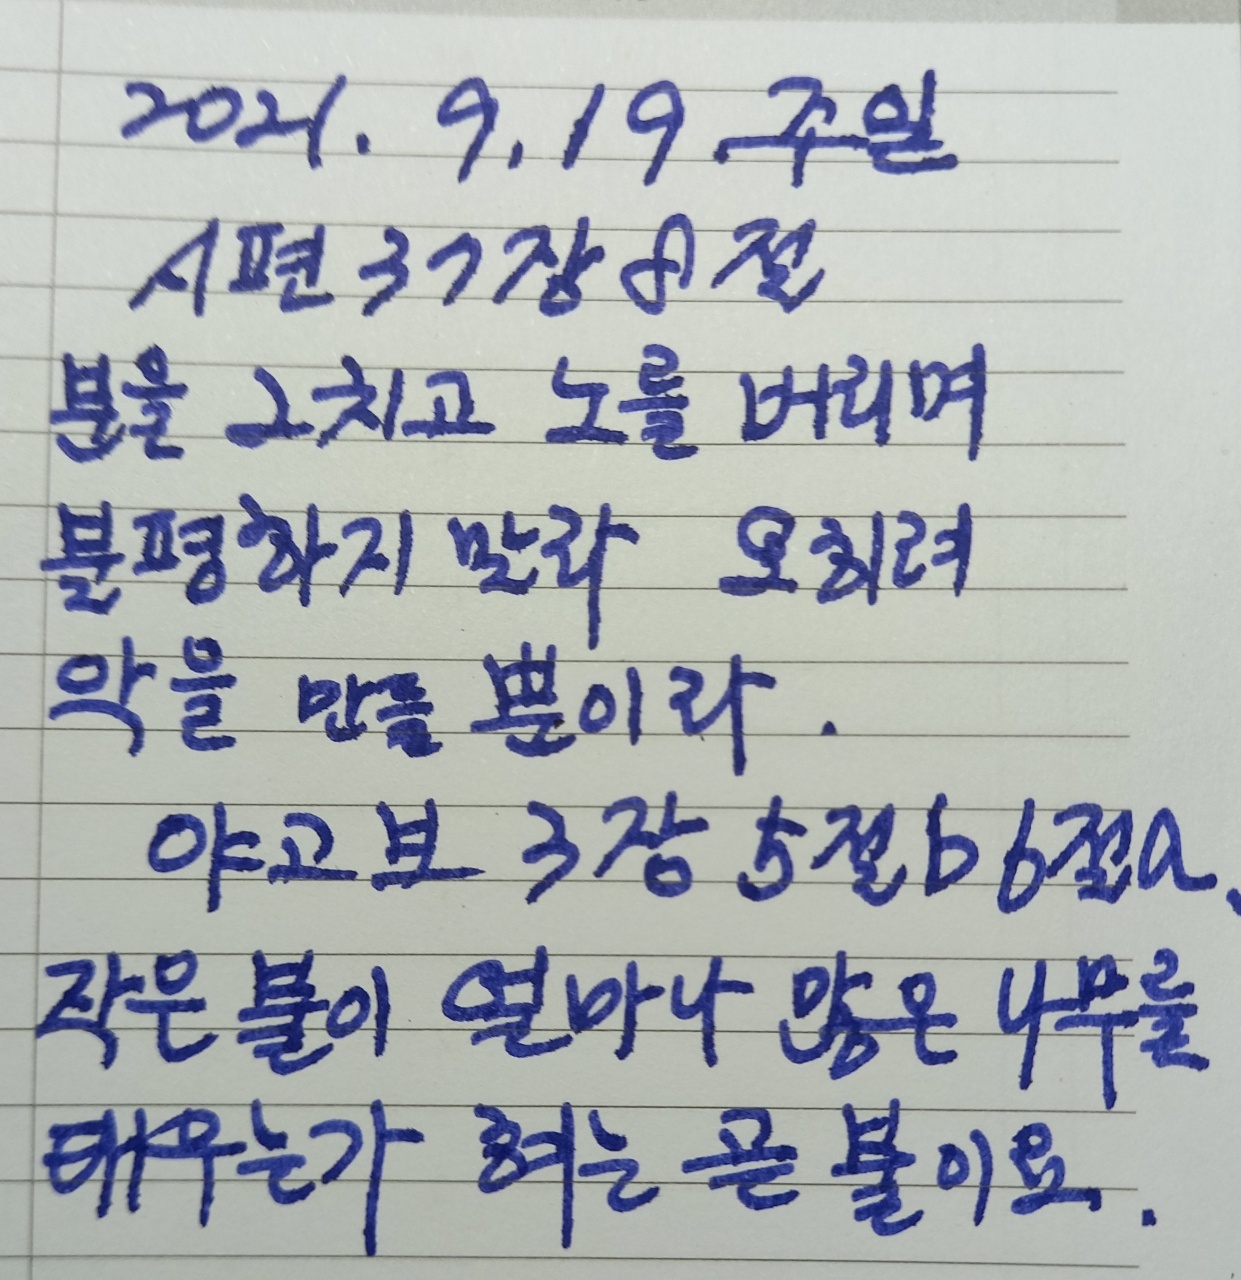 2021. 9. 19. 주일
시편 37장 8절
분을 그치고 노를 버리며
불평하지 말라 오히려
악을 만들 뿐이라.
야고보 3장 5절b 6절a.
작은 불이 얼마나 많은 나무를
태우는가 혀는 곧 불이요.